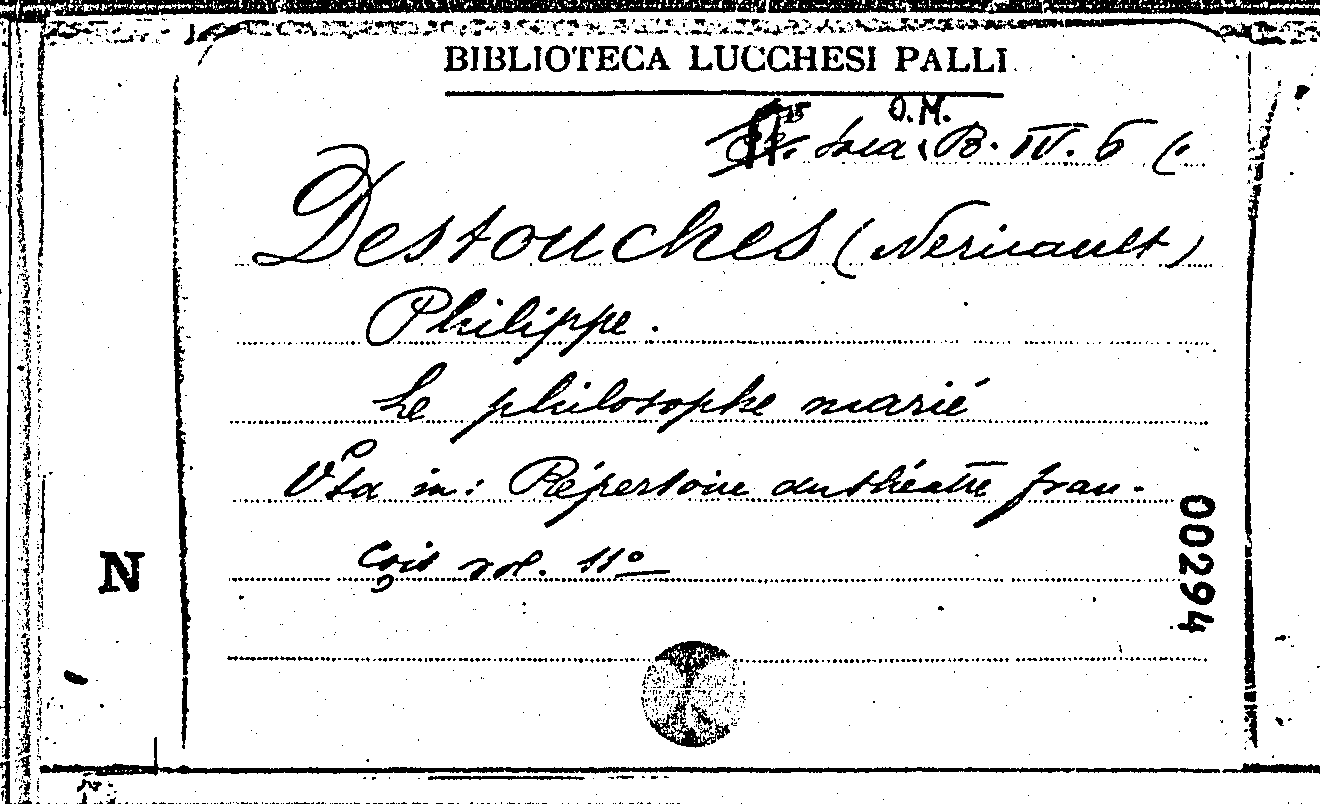 BIBLIOTECA LUCCHESI PALLI
O.M.
B. IV. 6 (.
Destouches (Nericault)
Philippe.
Le philosophe marié
Sta in: Répertoire du théatre fran-
çois vol. 11º
N
00294